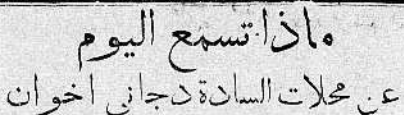 ماذا تسمع اليوم
عن محلات السادة دجاني اخوان